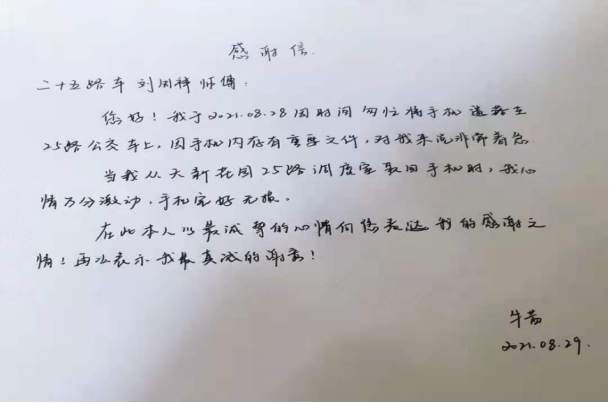 感谢信
二十五路车 刘国祥师傅:
您好!我于2021.08.28因时间匆忙将手机遗落至
25路公交车上,因手机内存有重要文件,对我来说非常着急.
当我从天新花园25路调度室取回手机时,我心
情万分激动,手机完好无损.
在此本人以最诚挚的心情向您表达我的感谢之
情!再次表示我最真诚的谢意!
牛
2021.08.29.